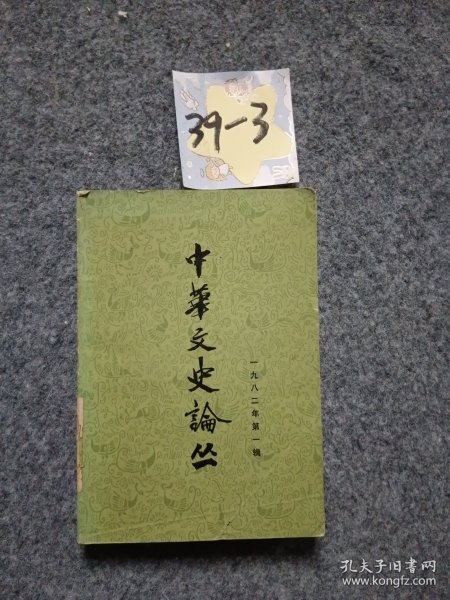 39-3
中華文史論丛
一九八二年第一辑
孔夫子旧书网
www.kongfz.com